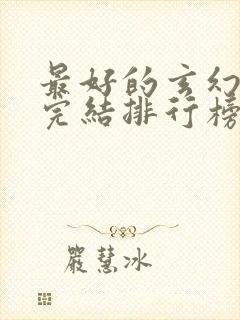 最好的玄幻
完結排行榜
嚴慧冰